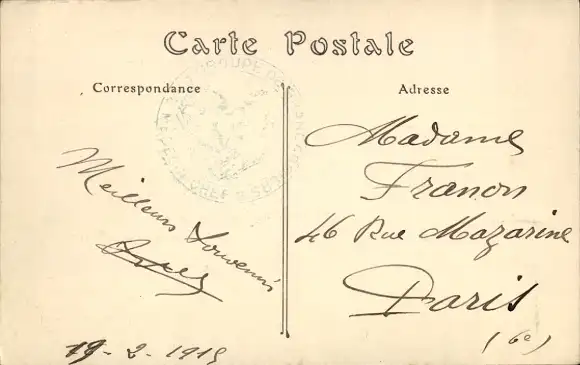 Carte Postale
Correspondance
Meilleurs Souvenirs
19-2-1915
Adresse
Madame
Franon
46 Rue Mazarine
Paris
(6e)